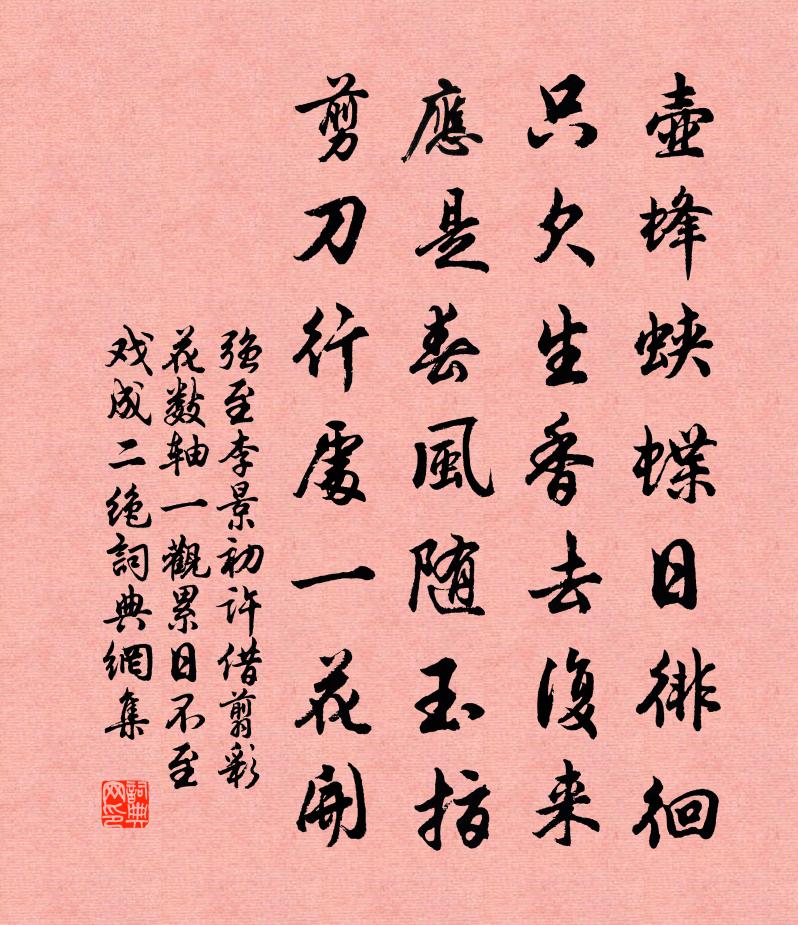 壺蜂蛺蝶日徘徊
只欠生香去復来
應是春風随玉指
剪刀行處一花開
强至李景初许借剪彩
花数轴一觀累日不至
戏成二绝詞典網集
詞典
网印